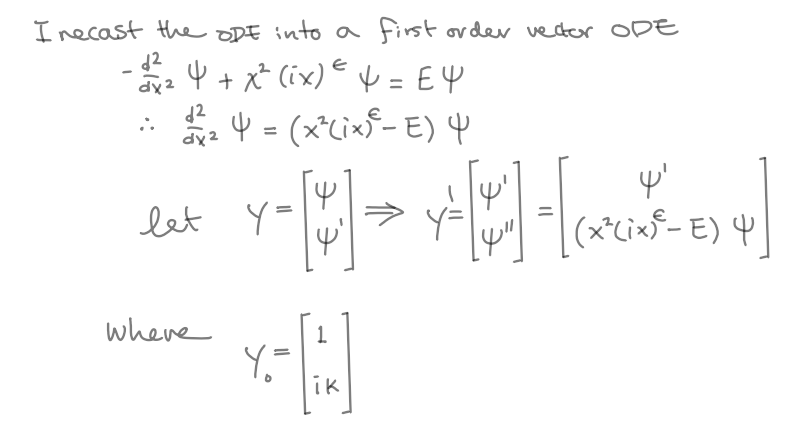 I recast the ODE into a first order vector ODE
-d²/dx² Ψ + x² (ix)^ϵ Ψ = E Ψ
∴ d²/dx² Ψ = (x²(ix)^ϵ - E) Ψ
let Y = [Ψ; Ψ'] ⇒ Y' = [Ψ'; Ψ''] = [Ψ'; (x²(ix)^ϵ - E) Ψ]
where Y₀ = [1; ik]